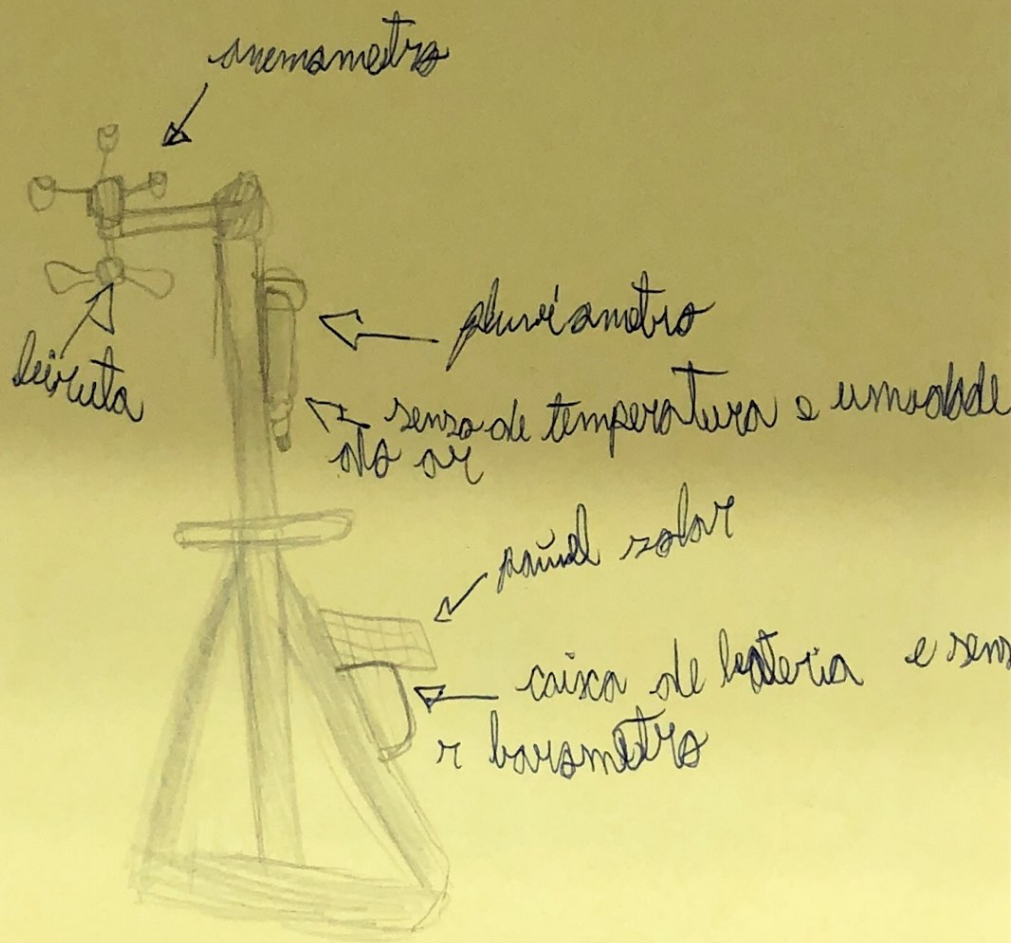 anemometro
pluviometro
biruta
senso de temperatura e umidade
do ar
painel solar
caixa de bateria e sens
r barometro